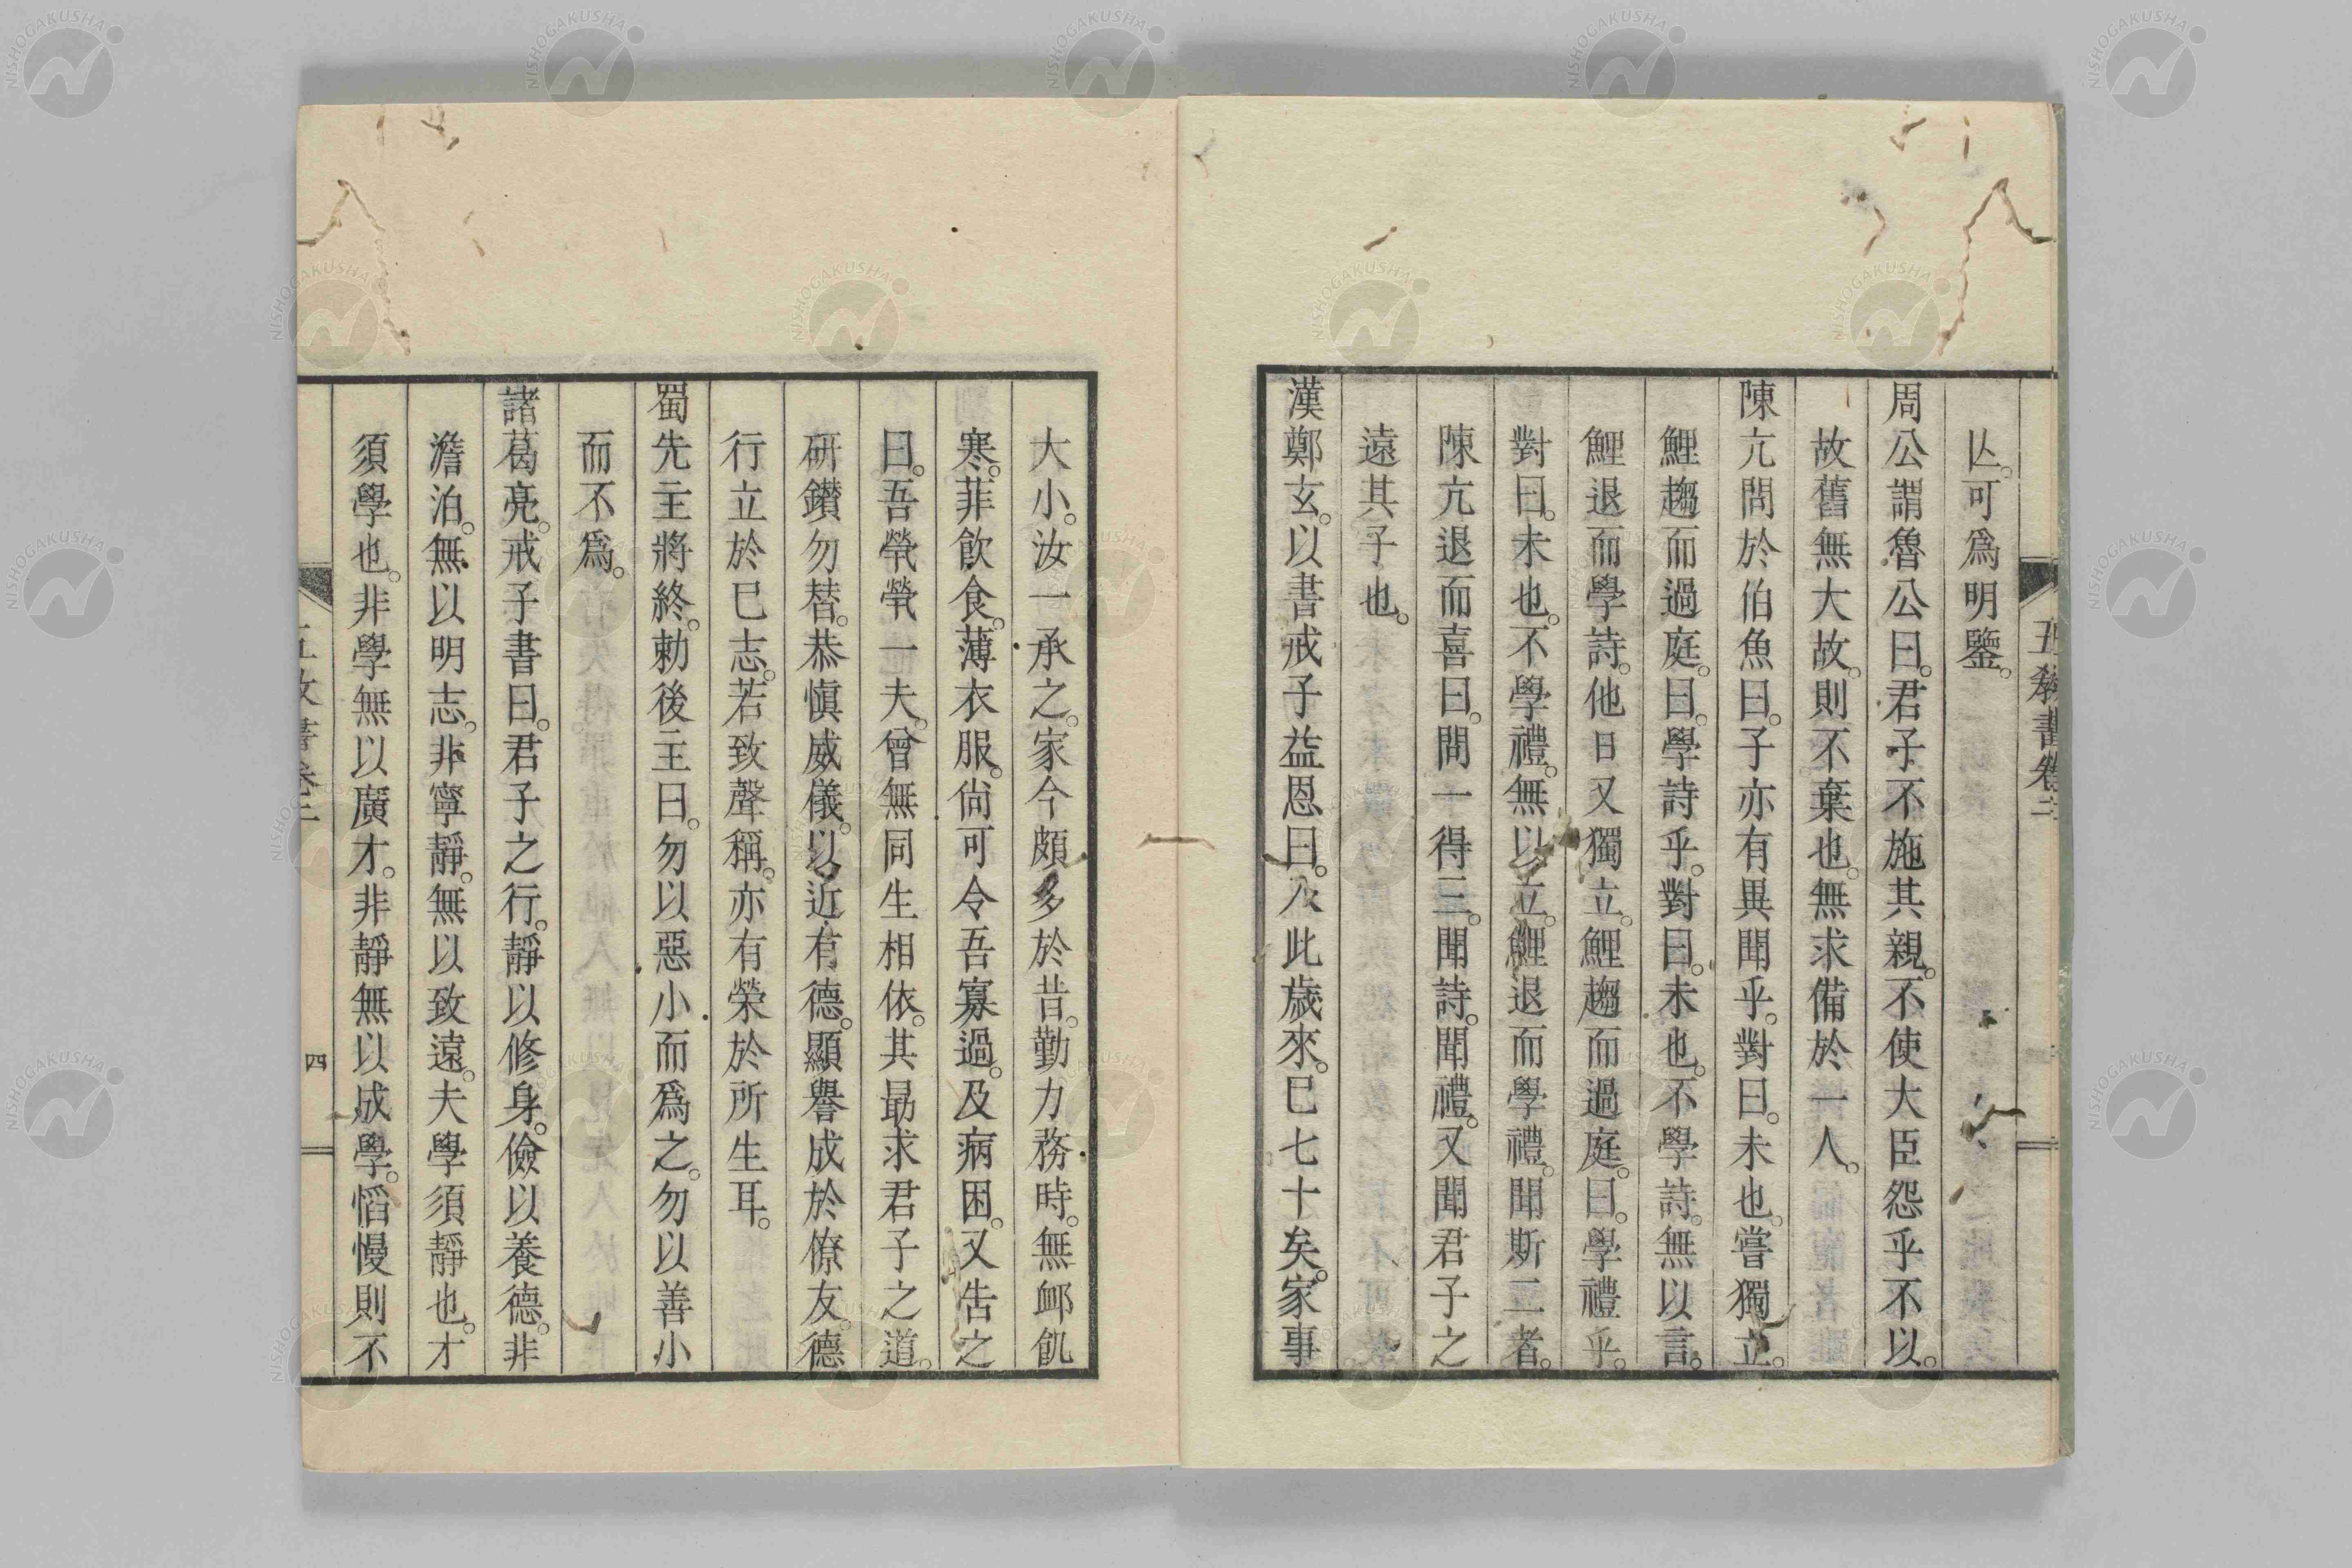 五教書卷二
亾。可爲明鑒。
周公謂魯公曰。君子不施其親。不使大臣怨乎不以。
故舊無大故。則不棄也。無求備於一人。
陳亢問於伯魚曰。子亦有異聞乎。對曰。未也。嘗獨立。
鯉趨而過庭。曰。學詩乎。對曰。未也。不學詩。無以言。
鯉退而學詩。他日又獨立。鯉趨而過庭。曰。學禮乎。
對曰。未也。不學禮。無以立。鯉退而學禮。聞斯二者。
陳亢退而喜曰。問一得三。聞詩。聞禮。又聞君子之
遠其子也。
漢鄭玄。以書戒子益恩曰。入此歲來。已七十矣。家事
大小。汝一承之。家今頗多於昔。勤力務時。無卹飢
寒。菲飲食。薄衣服。尙可令吾寡過。及病困。又吿之
曰。吾煢煢一夫。曾無同生相依。其勗求君子之道。
研鑽勿替。恭愼威儀。以近有德。顯譽成於僚友。德
行立於已志。若致聲稱。亦有榮於所生耳。
蜀先主將終。勅後主曰。勿以惡小而爲之。勿以善小
而不爲。
諸葛亮。戒子書曰。君子之行。靜以修身。儉以養德。非
澹泊。無以明志。非寧靜。無以致遠。夫學須靜也。才
須學也。非學無以廣才。非靜無以成學。慆慢則不
四
NISHOGAKUSHA